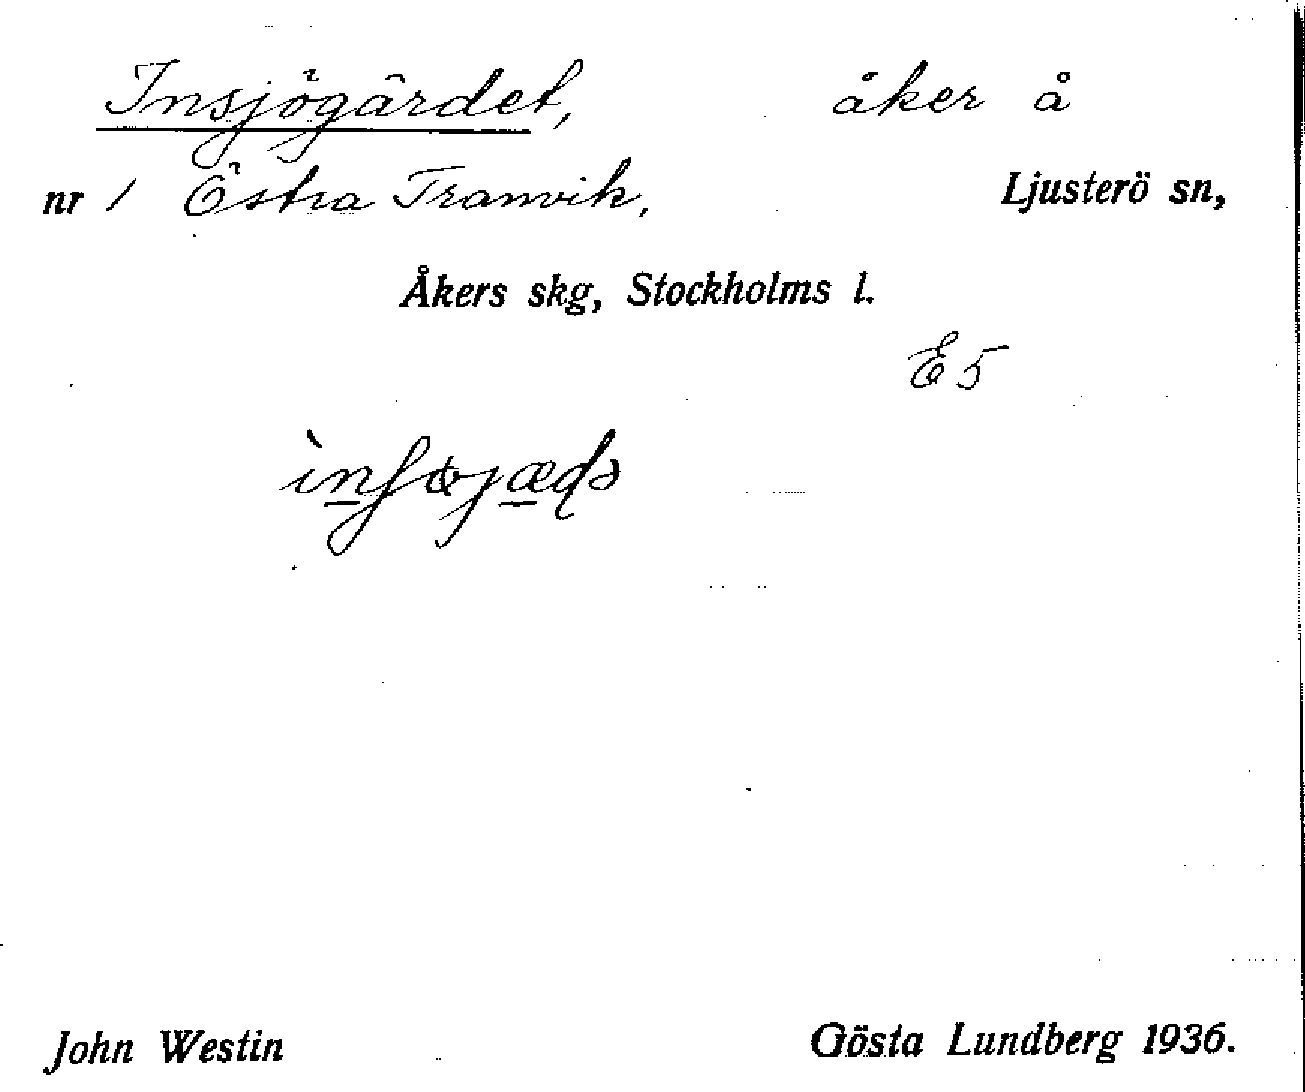 Insjögärdet, åker å
nr 1 Östra Tranvik, Ljusterö sn,
Åkers skg, Stockholms l.
E5
John Westin Gösta Lundberg 1936.